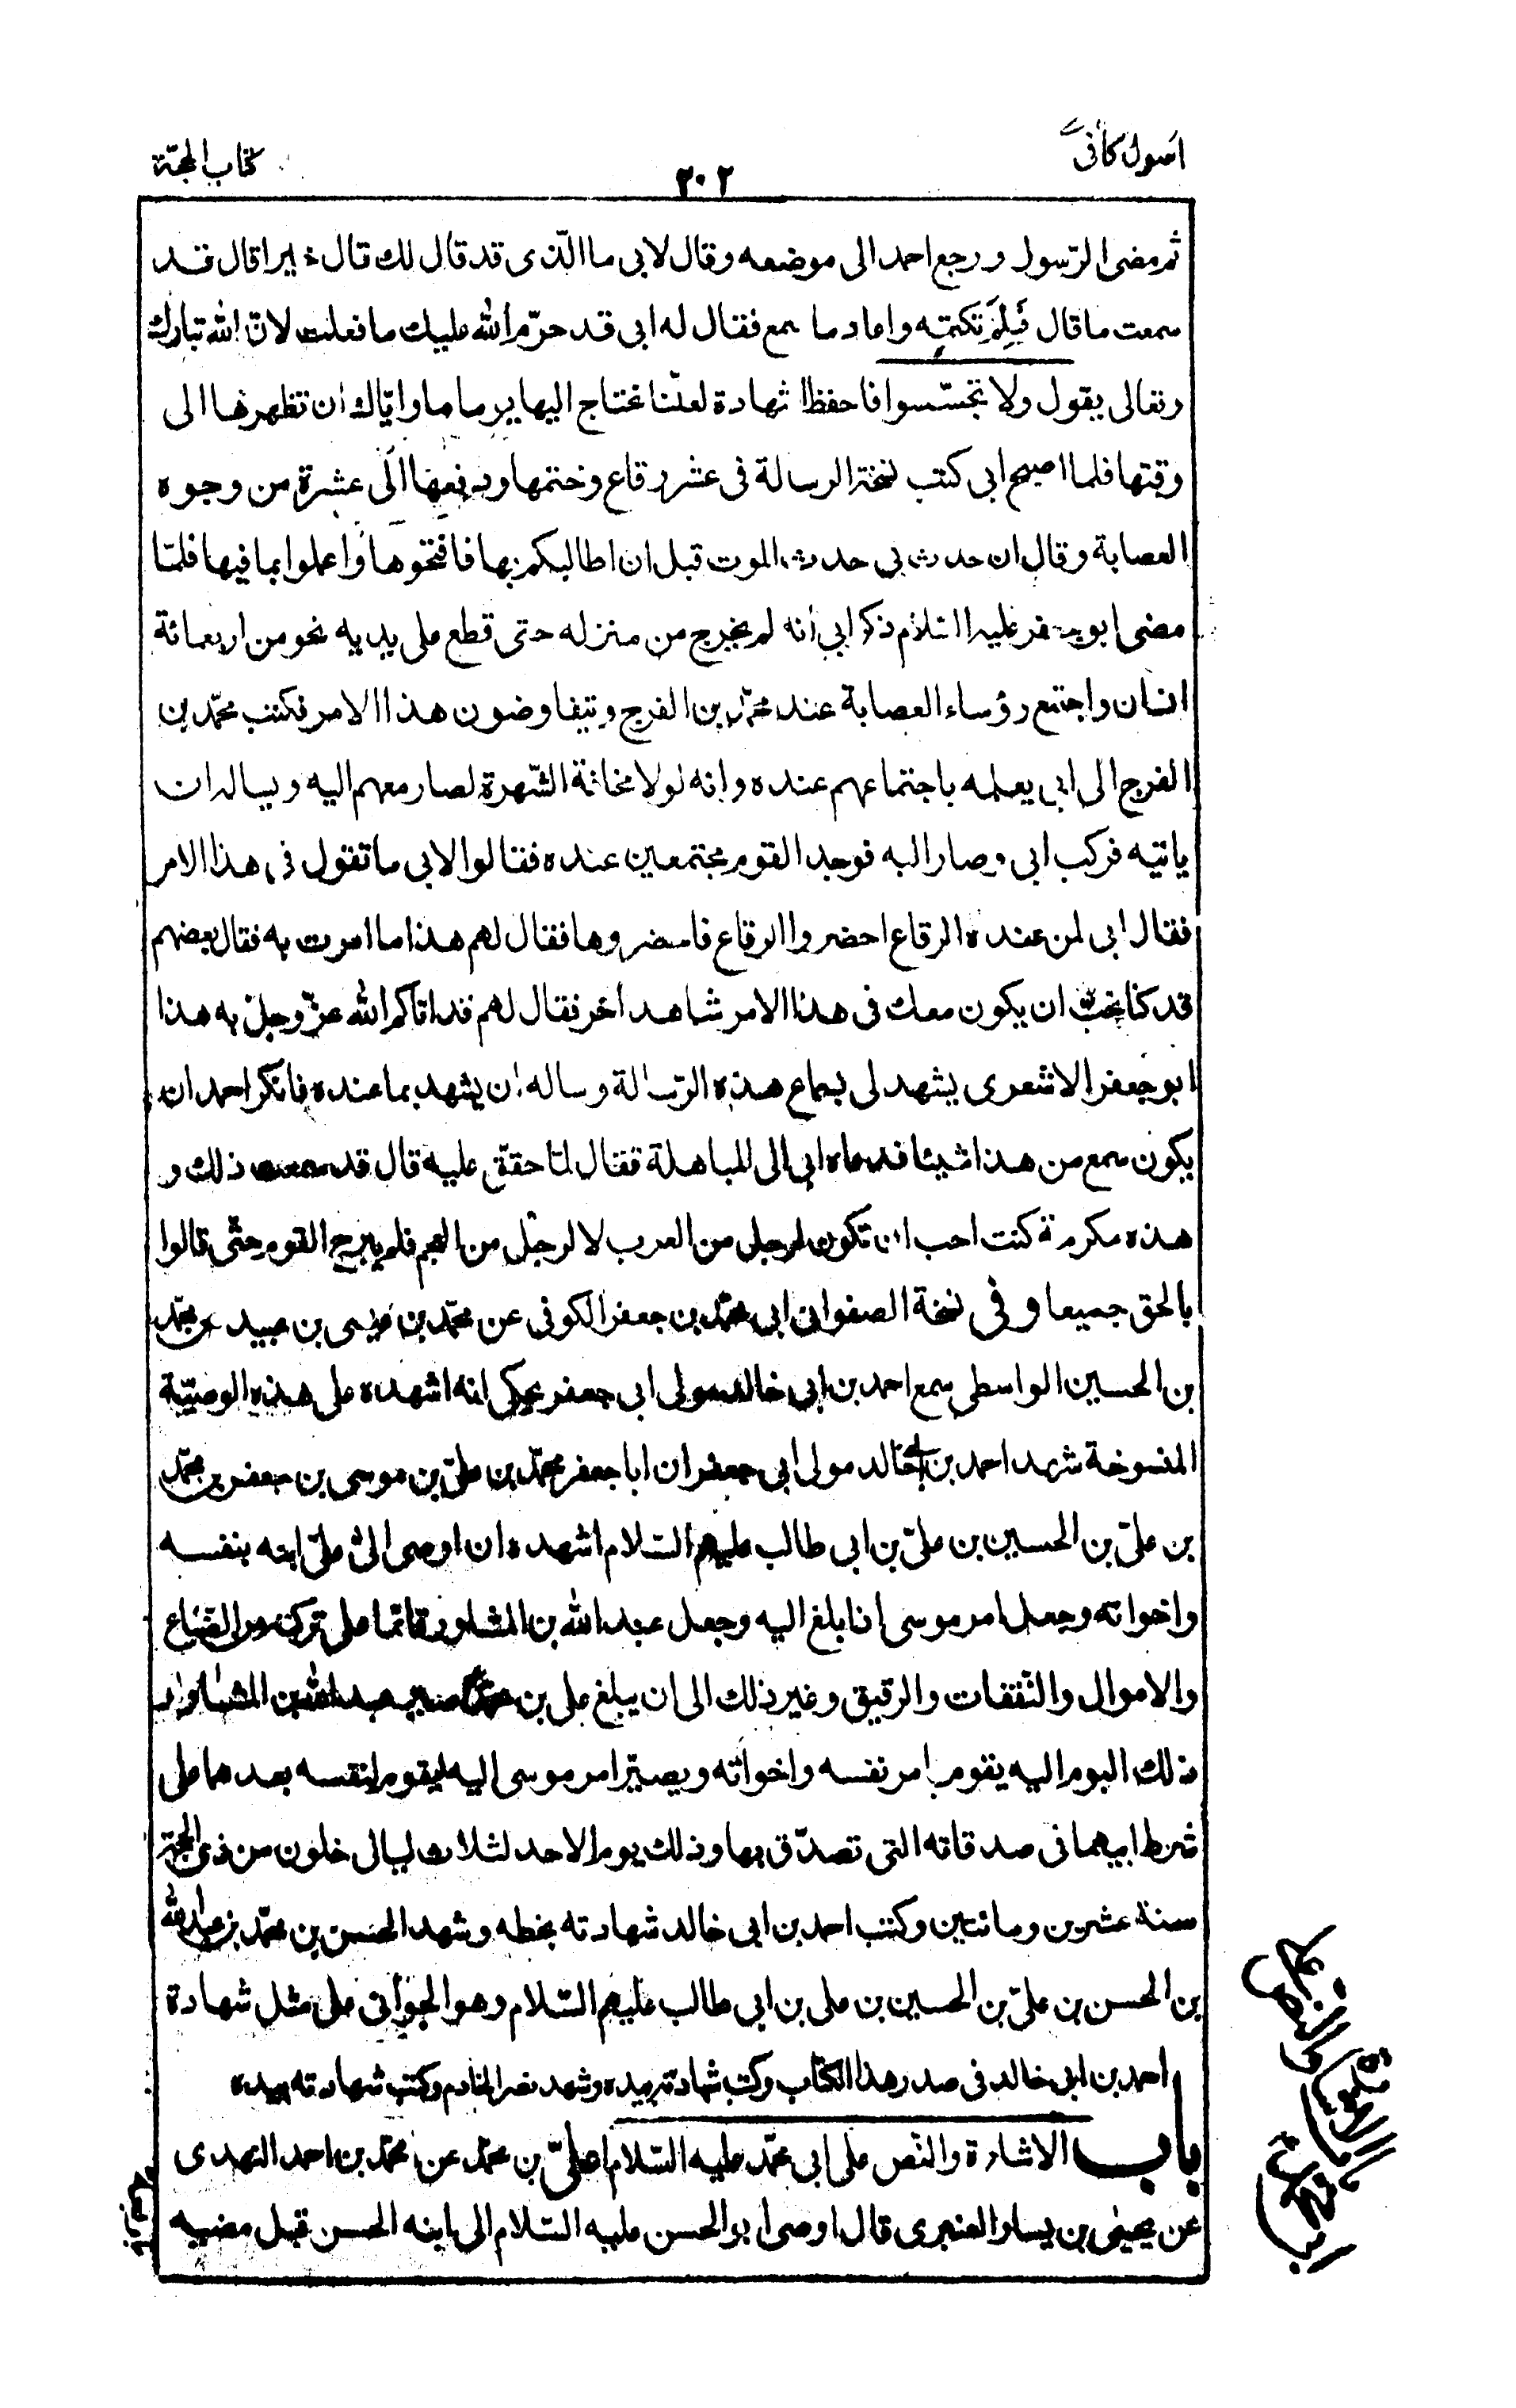 اصول كافى
٢٠٢
كتاب الحجّة
ثم مضى الرّسول و رجع احمد الى موضعه وقال لابى ما الّذى قد قال لك قال خيرا قال قد
سمعت ما قال فَلِمَ تكتمه واعاد ما سمع فقال له ابى قد حرّم الله عليك ما فعلت لانّ الله تبارك
وتعالى يقول ولا تجسّسوا فاحفظ الشهادة لعلّنا نحتاج اليها يوما ما وايّاك ان تظهرها الى
وقتها فلما اصبح ابى كتب نسخة الرسالة فى عشر رقاع وختمها ودفعها الى عشرة من وجوه
العصابة وقال ان حدث بى حدث الموت قبل ان اطالبكم بها فافتحوها واعملوا بما فيها فلمّا
مضى ابو جعفر عليه السّلام ذكر ابى انه لم يخرج من منزله حتى قطع على يديه نحو من اربعمائة
انسان واجتمع رؤساء العصابة عند محمّد بن الفرج يتفاوضون هذا الامر فكتب محمّد بن
الفرج الى ابى يعلمه باجتماعهم عنده وانه لولا مخافة الشّهرة لصار معهم اليه ويساله ان
ياتيه فركب ابى وصار اليه فوجد القوم مجتمعين عنده فقالوا لابى ما تقول فى هذا الامر
فقال ابى لمن عنده الرقاع احضروا الرقاع فاحضروها فقال لهم هذا ما امرت به فقال بعضهم
قد كنا نحبّ ان يكون معك فى هذا الامر شاهد اخر فقال لهم قد اتاكم الله عزّ وجلّ به هذا
ابو جعفر الاشعرى يشهد لى بسماع هذه الرّسالة وساله ان يشهد بما عنده فانكر احمد ان
يكون سمع من هذا شيئا فدعاه ابى الى المباهلة فقال لمّا حقّق عليه قال قد سمعت ذلك و
هذه مكرمة كنت احب ان تكون لرجل من العرب لا لرجل من العجم فلم يبرح القوم حتّى قالوا
بالحق جميعا و فى نسخة الصفوانى ابى محمّد بن جعفر الكوفى عن محمّد بن عيسى بن عبيد عن محمّد
بن الحسين الواسطى سمع احمد بن ابى خالد مولى ابى جعفر يحكى انه اشهده على هذه الوصيّة
المنسوخة شهد احمد بن ابى خالد مولى ابى جعفر ان ابا جعفر محمّد بن علىّ بن موسى بن جعفر بن محمّد
بن علىّ بن الحسين بن علىّ بن ابى طالب عليهم السّلام اشهده ان اوصى الى علىّ ابنه بنفسه
واخواته وجعل امر موسى اذا بلغ اليه وجعل عبد الله بن المشاور قائما على تركته من الضّياع
والاموال والنّفقات والرقيق وغير ذلك الى ان يبلغ على بن محمّد صيّر عبد الله بن المشاور
ذلك اليوم اليه يقوم بامر نفسه واخواته ويصيّر امر موسى اليه ليقوم لنفسه بعدهما على
شرط ابيهما فى صدقاته التى تصدّق بها وذلك يوم الاحد لثلاث ليالى خلون من ذى الحجّة
سنة عشرين ومائتين وكتب احمد بن ابى خالد شهادته بخطه وشهد الحسن بن محمّد بن عبد الله
بن الحسن بن علىّ بن الحسين بن على بن ابى طالب عليهم السّلام وهو الجوّانى على مثل شهادة
احمد بن ابى خالد فى صدر هذا الكتاب وكتب شهادته بيده وشهد نصر الخادم وكتب شهادته بيده
باب الاشارة والنّص على ابى محمّد عليه السّلام علىّ بن محمّد عن محمّد بن احمد النهدى
عن يحيى بن يسار العنبرى قال اوصى ابو الحسن عليه السّلام الى ابنه الحسن قبل مضيه
باب الاشارة والنص على
ابى محمّد ع